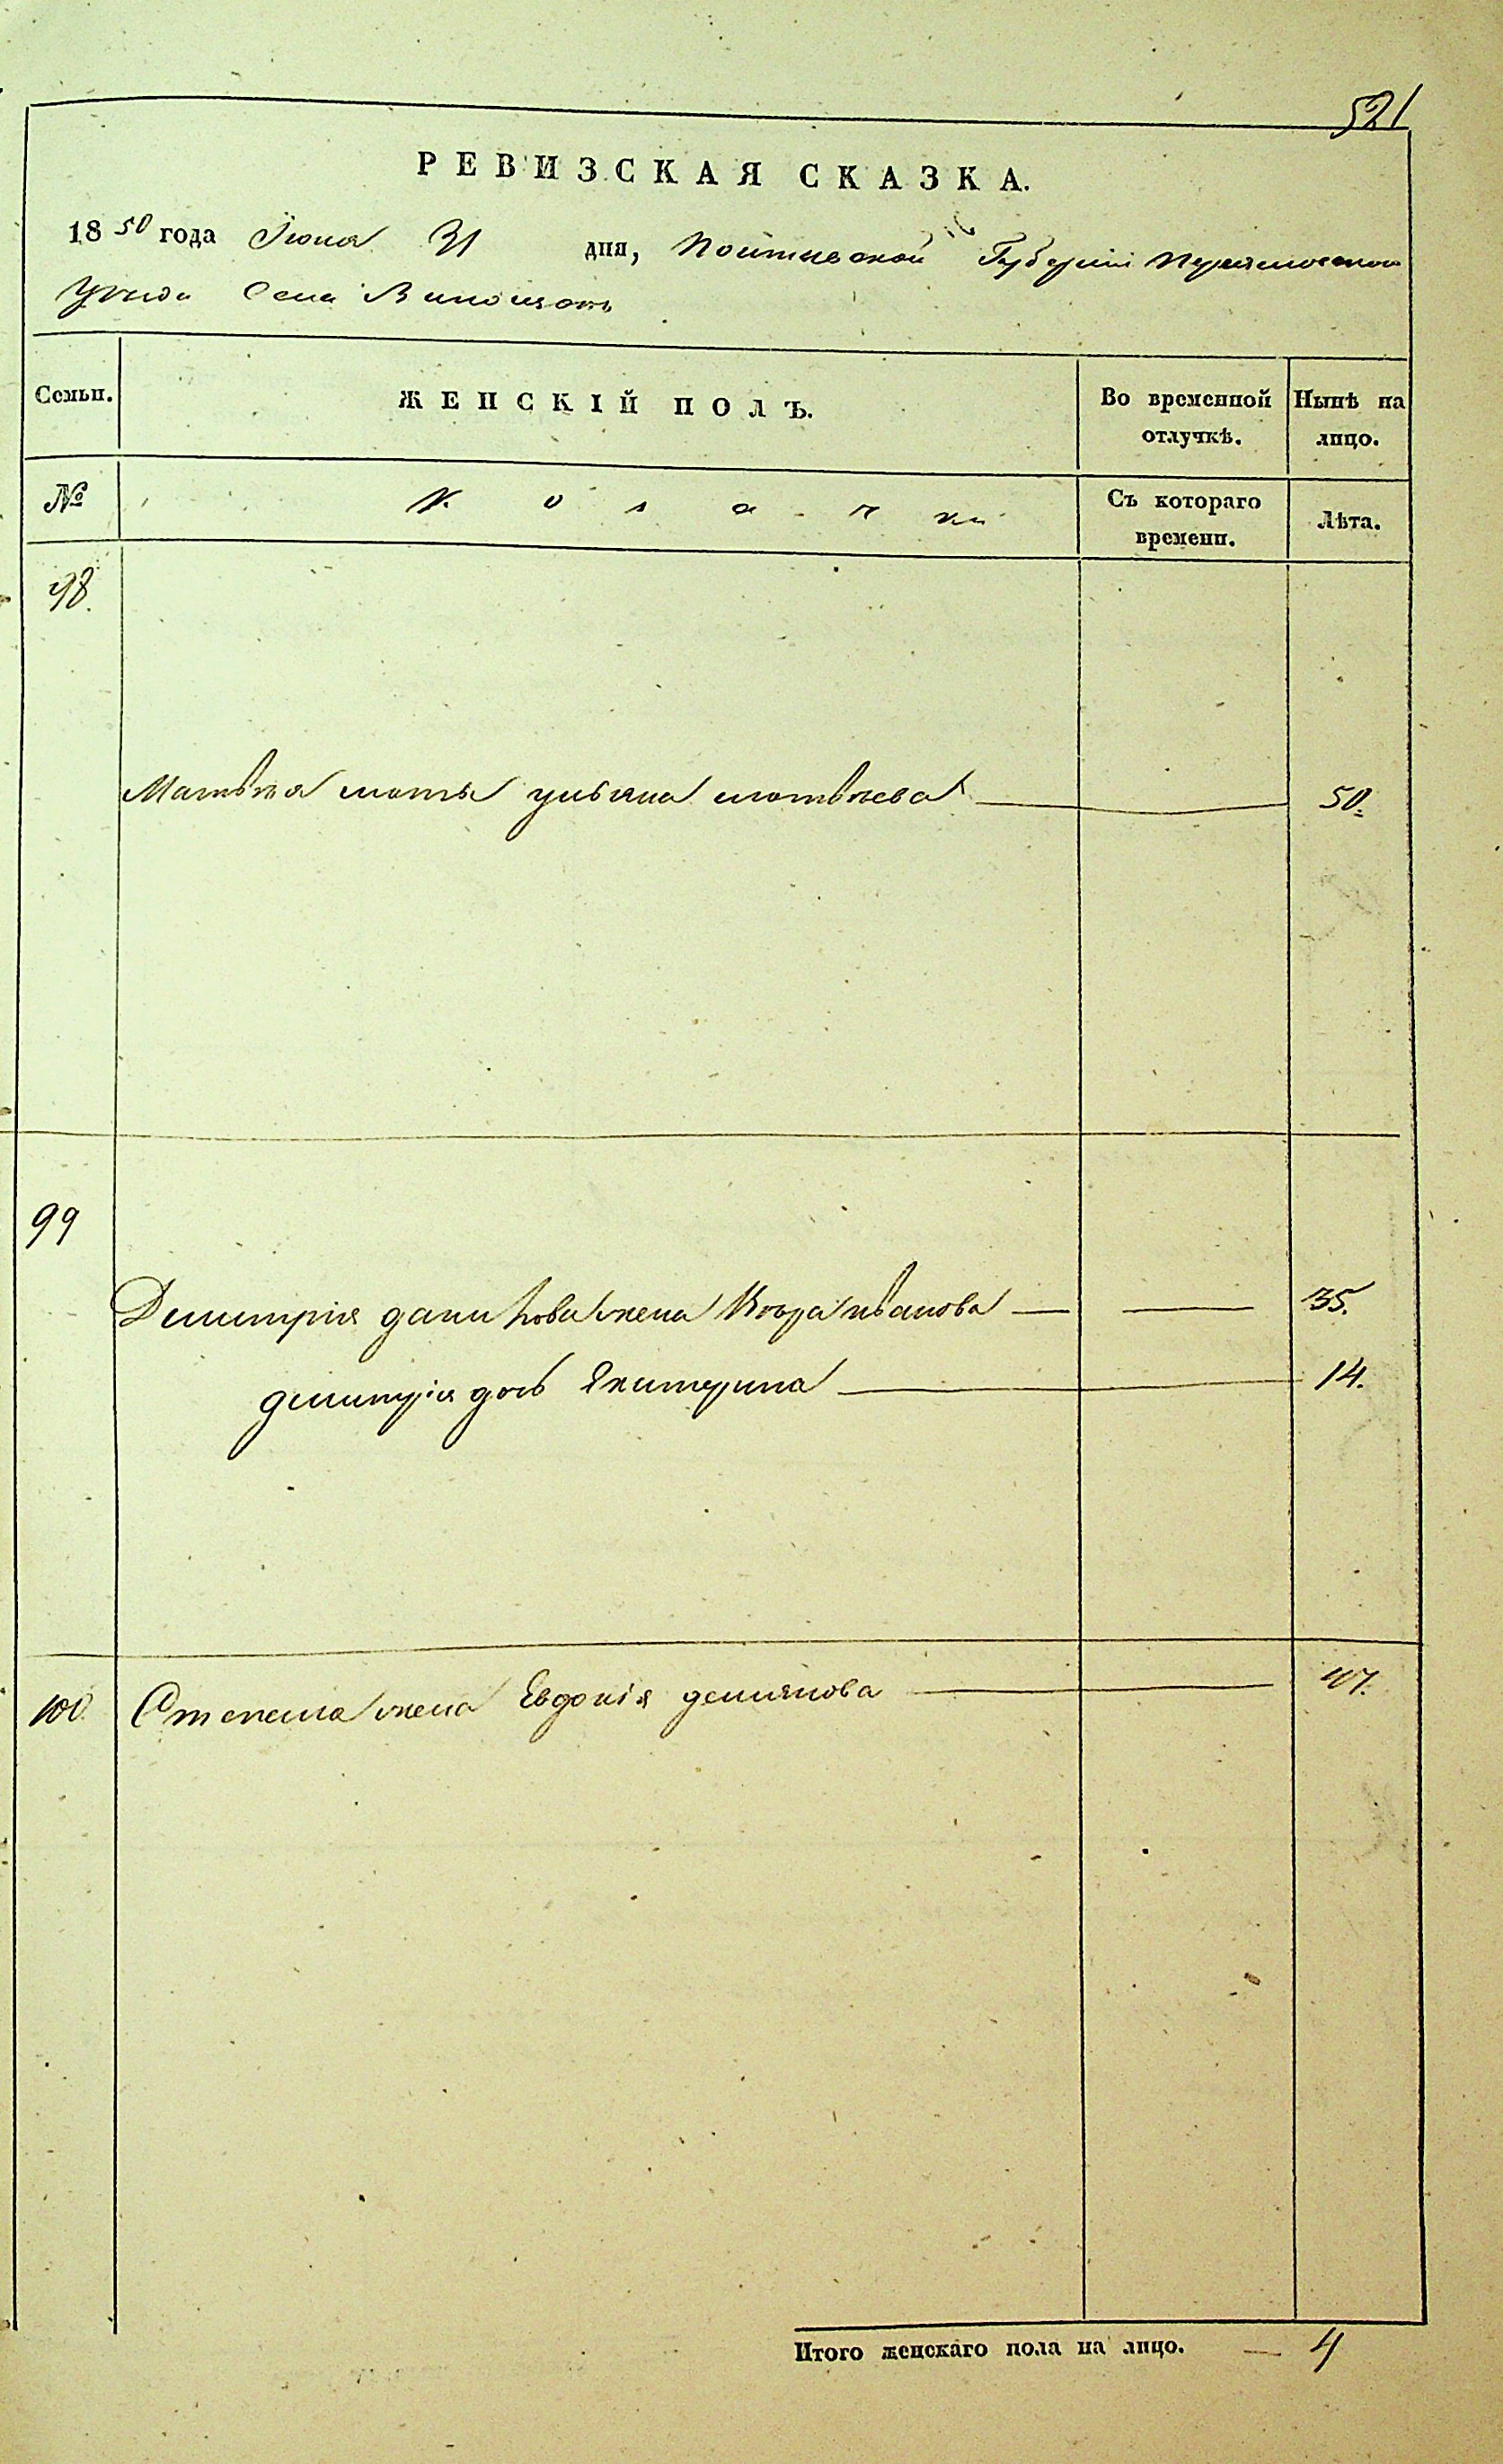 521
РЕВИЗСКАЯ СКАЗКА.
1850 года Июня 31 дня, Полтавской Губернии Переяславского
Уезда Села
Семьи. ЖЕНСКІЙ ПОЛЪ. Во временной отлучкѣ. Нынѣ на лицо.
№ Козачки Съ котораго времени. Лѣта.
98.
Матвѣя мать ульяна матвѣева 50.
99
Димитрія данилова жена иванова 35.
димитрія дочь Екатерина 14.
100. Степана жена Евдокія демянова 47.
Итого женскаго пола на лицо. — 4